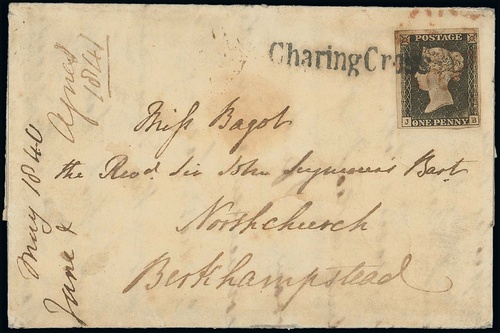 CharingCross
POSTAGE
J B
ONE PENNY
Miss Bagot
the Revd. Sir John Seymour's Bart.
Northchurch
Berkhampstead
May 1840
June &
1841